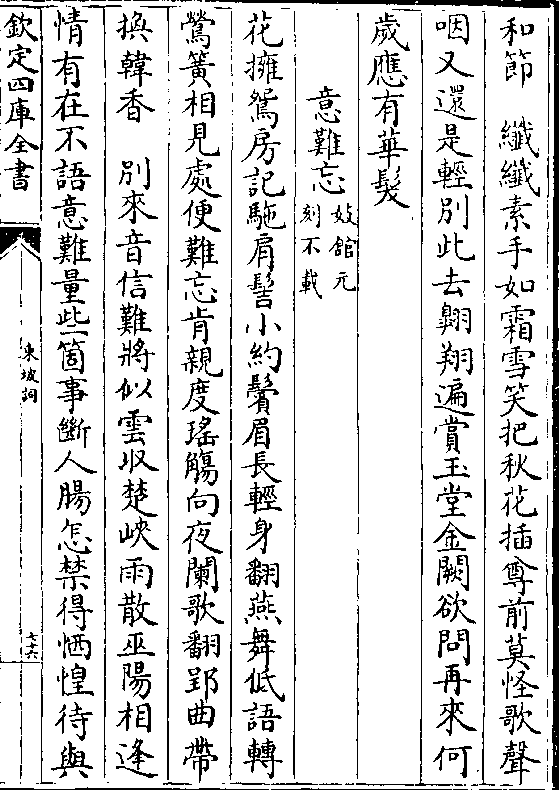 和節　纖纖素手如霜雪笑把秋花插尊前莫怪歌聲
咽又還是輕別此去翺翔遍賞玉堂金闕欲問再來何
歲應有華髮
意難忘妓館元刻不載
花擁鴛房記駞肩髻小約鬢眉長輕身翻燕舞低語轉
鶯簧相見處便難忘肯親度瑤觴向夜闌歌翻郢曲帶
換韓香　別來音信難將似雲収楚峽雨散巫陽相逢
情有在不語意難量些箇事斷人腸怎禁得恓惶待與
欽定四庫全書
東坡詞
七十六